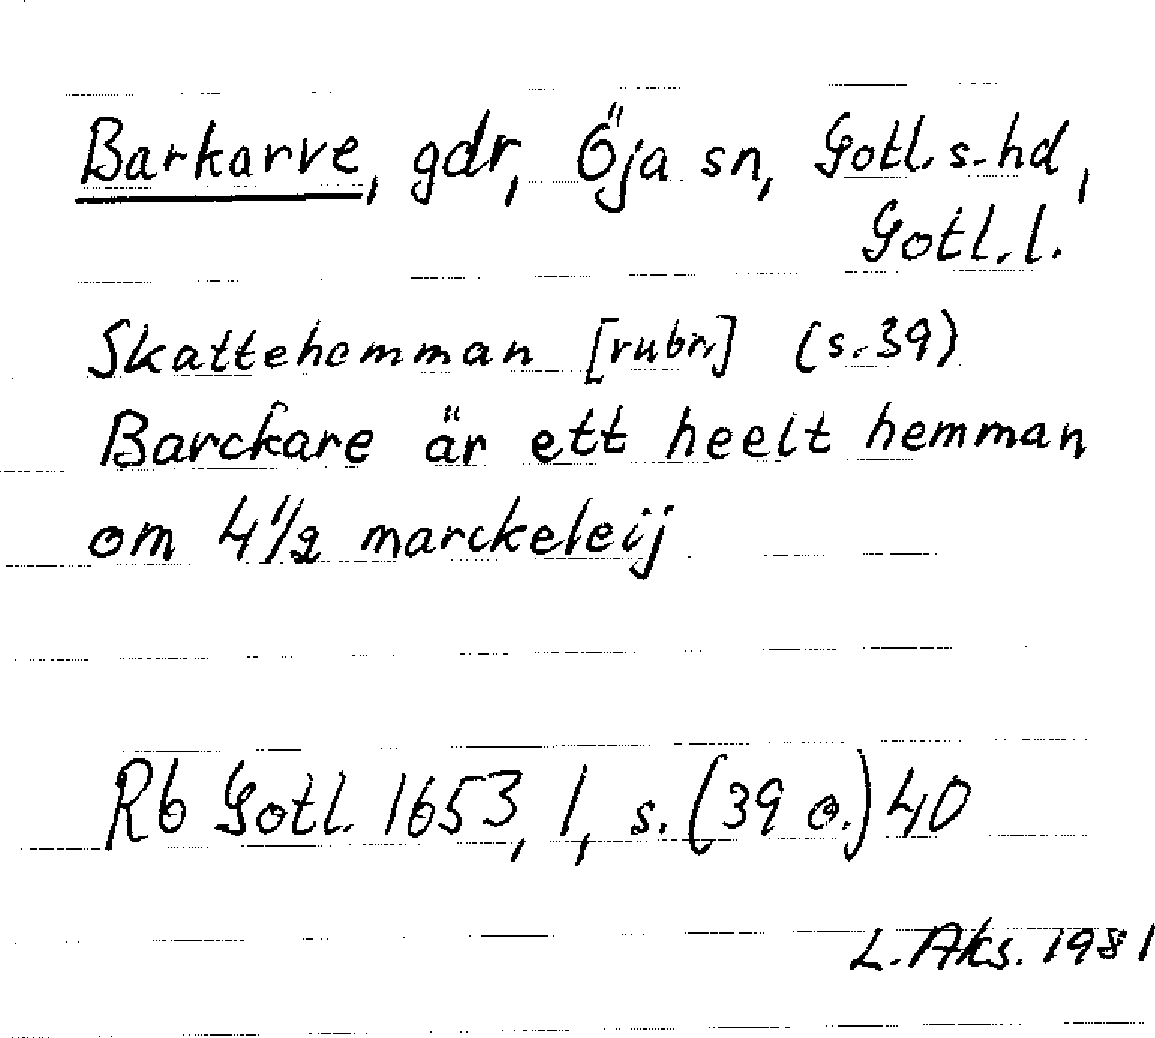 Barkarve, gdr, Öja sn, Gotl. s. hd,
Gotl. l.
Skattehemman [rubr.] (s. 39)
Barckare är ett heelt hemman
om 4 1/2 marckeleij
Rb Gotl. 1653, 1, s. (39 o.) 40
L. Aks. 1981